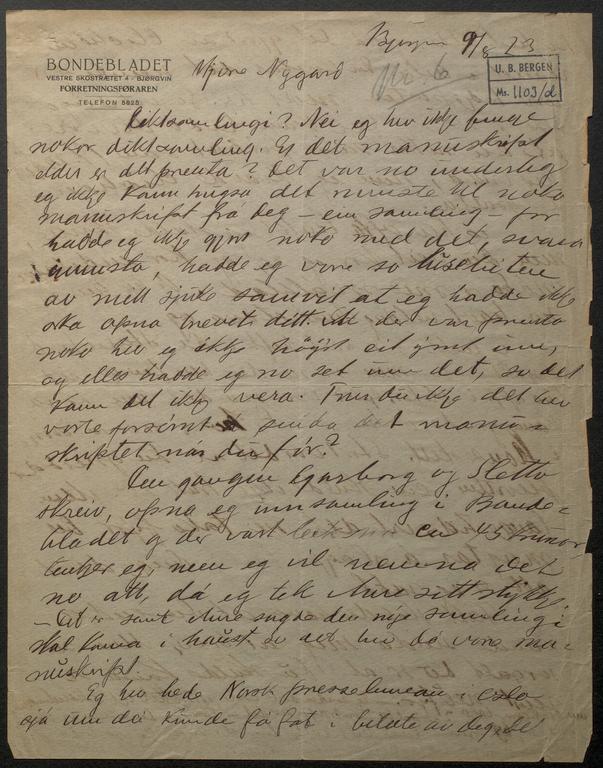 BONDEBLADET
VESTRE SKOSTRÆTET 4 - BJØRGVIN
FORRETNINGSFØRAREN
TELEFON 5825
Bjørgvin 9/8 23
Nr. 6
U. B. BERGEN
Ms. 1103/d
Kjære Nygard
Diktsamlingi? Nei eg hev ikkje funge
nokor diktsamling. Er det manuskript
elder er det prenta? Det var no underleg
eg ikkje kann hugsa det minste til noko
manuskript frå deg - ein samling - for
hadde eg ikkje gjort noko med det, svara
i minsta, hadde eg vore so
av mitt sjuke samvit at eg hadde ikkje
opna brevet ditt. der var prenta
noko hev eg ikkje høyrt eit ymt um,
og elles hadde eg no set um det, so det
kann det ikkje vera. Trur du ikkje det hev
vorte forsømt å senda det manu-
skriptet når du fór?
Den gangen Garborg og Sletto
skreiv, opna eg innsamling i Bonde-
bladet og der vart ca 45 krunor
tenkjer eg, men eg vil nemna det
no att, då eg tek Aure sitt stykkje.
- Det er samt Aure sagde den nye samlingi
skal koma i haust so det hev då vore ma-
nuskript.
Eg hev bede Norsk pressebureau i Oslo
sjå um dei kunde få fat i bilæte av deg,